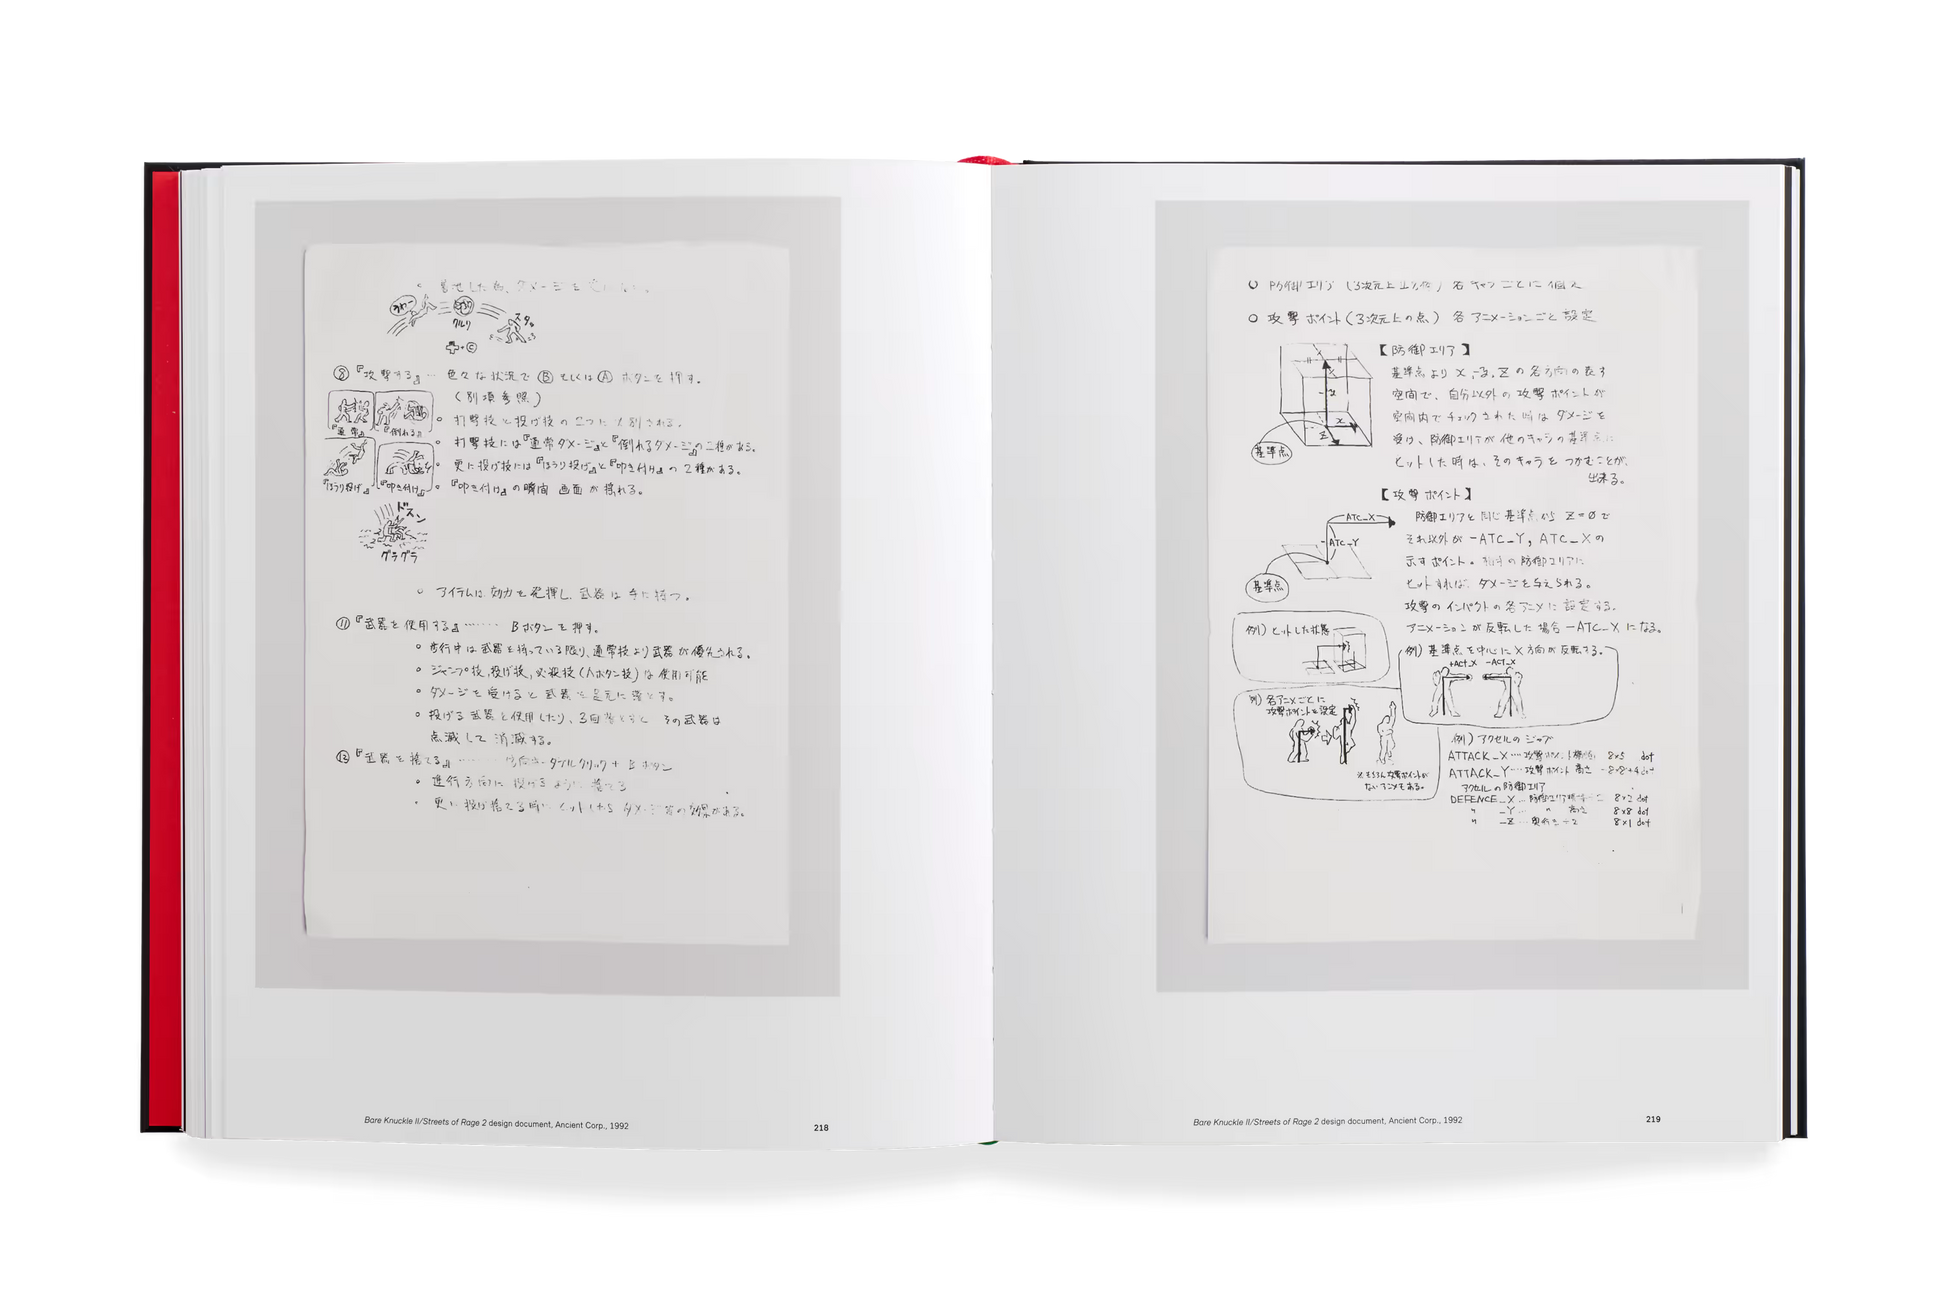 クルリ
スタッ
+C
⑧『攻撃する』… 色々な状況で Ⓑ もしくは Ⓐ ボタンを押す。
(別項参照)
『通常』
『倒れる』
『ほうり投げ』
『叩き付け』
○ 打撃技と投げ技の2つに大別される。
○ 打撃技には『通常ダメージ』と『倒れるダメージ』の二種がある。
○ 更に投げ技には『ほうり投げ』と『叩き付け』の2種がある。
○ 『叩き付け』の瞬間 画面が揺れる。
ドスン
グラグラ
○ アイテムは効力を発揮し、武器は手に持つ。
⑪『武器を使用する』…… Bボタンを押す。
○ 歩行中は武器を持っている限り、通常技より武器が優先される。
○ ジャンプ技、投げ技、必殺技(Aボタン技)は使用可能
○ ダメージを受けると武器を足元に落とす。
○ 投げる武器を使用したり、3回落とすと その武器は
点滅して消滅する。
⑫『武器を捨てる』…… 方向キーダブルクリック + Bボタン
○ 進行方向に投げるように捨てる
○ 更に投げ捨てる時にヒットしたら ダメージ等の効果がある。
Bare Knuckle II/Streets of Rage 2 design document, Ancient Corp., 1992
218
○ 防御エリア (3次元上立体) 各キャラごとに
○ 攻撃ポイント(3次元上の点) 各アニメーションごと設定
【防御エリア】
基準点より X, -Y, Z の各方向の表す
空間で、自分以外の攻撃ポイントが
空間内でチェックされた時はダメージを
受け、防御エリアが他のキャラの基準点に
ヒットした時は、そのキャラをつかむことが、
出来る。
基準点
【攻撃ポイント】
防御エリアと同じ基準点から Z=0で
それ以外が -ATC_Y, ATC_X の
示すポイント。 の防御エリアに
ヒットすれば、ダメージを与えられる。
攻撃のインパクトの各アニメに設定する。
アニメーションが反転した場合 -ATC_X になる。
ATC_X
-ATC_Y
基準点
例) ヒットした状態
例) 基準点を中心にX方向が反転する。
+ACT_X -ACT_X
例) 各アニメごとに
攻撃ポイントを設定
※もちろん攻撃ポイントが
ないアニメもある。
例) アクセルのジャブ
ATTACK_X…攻撃ポイント横 8×5 dot
ATTACK_Y…攻撃ポイント高さ -8×8+4dot
アクセルの防御エリア
DEFENCE_X…防御エリア横 8×2 dot
〃 _Y… 〃 高さ 8×8 dot
〃 _Z… 奥行き÷2 8×1 dot
Bare Knuckle II/Streets of Rage 2 design document, Ancient Corp., 1992
219